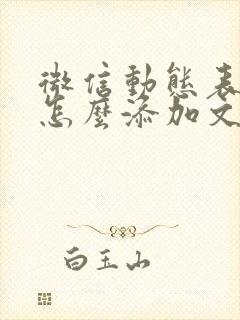 微信動態表
怎麼添加文
白玉山